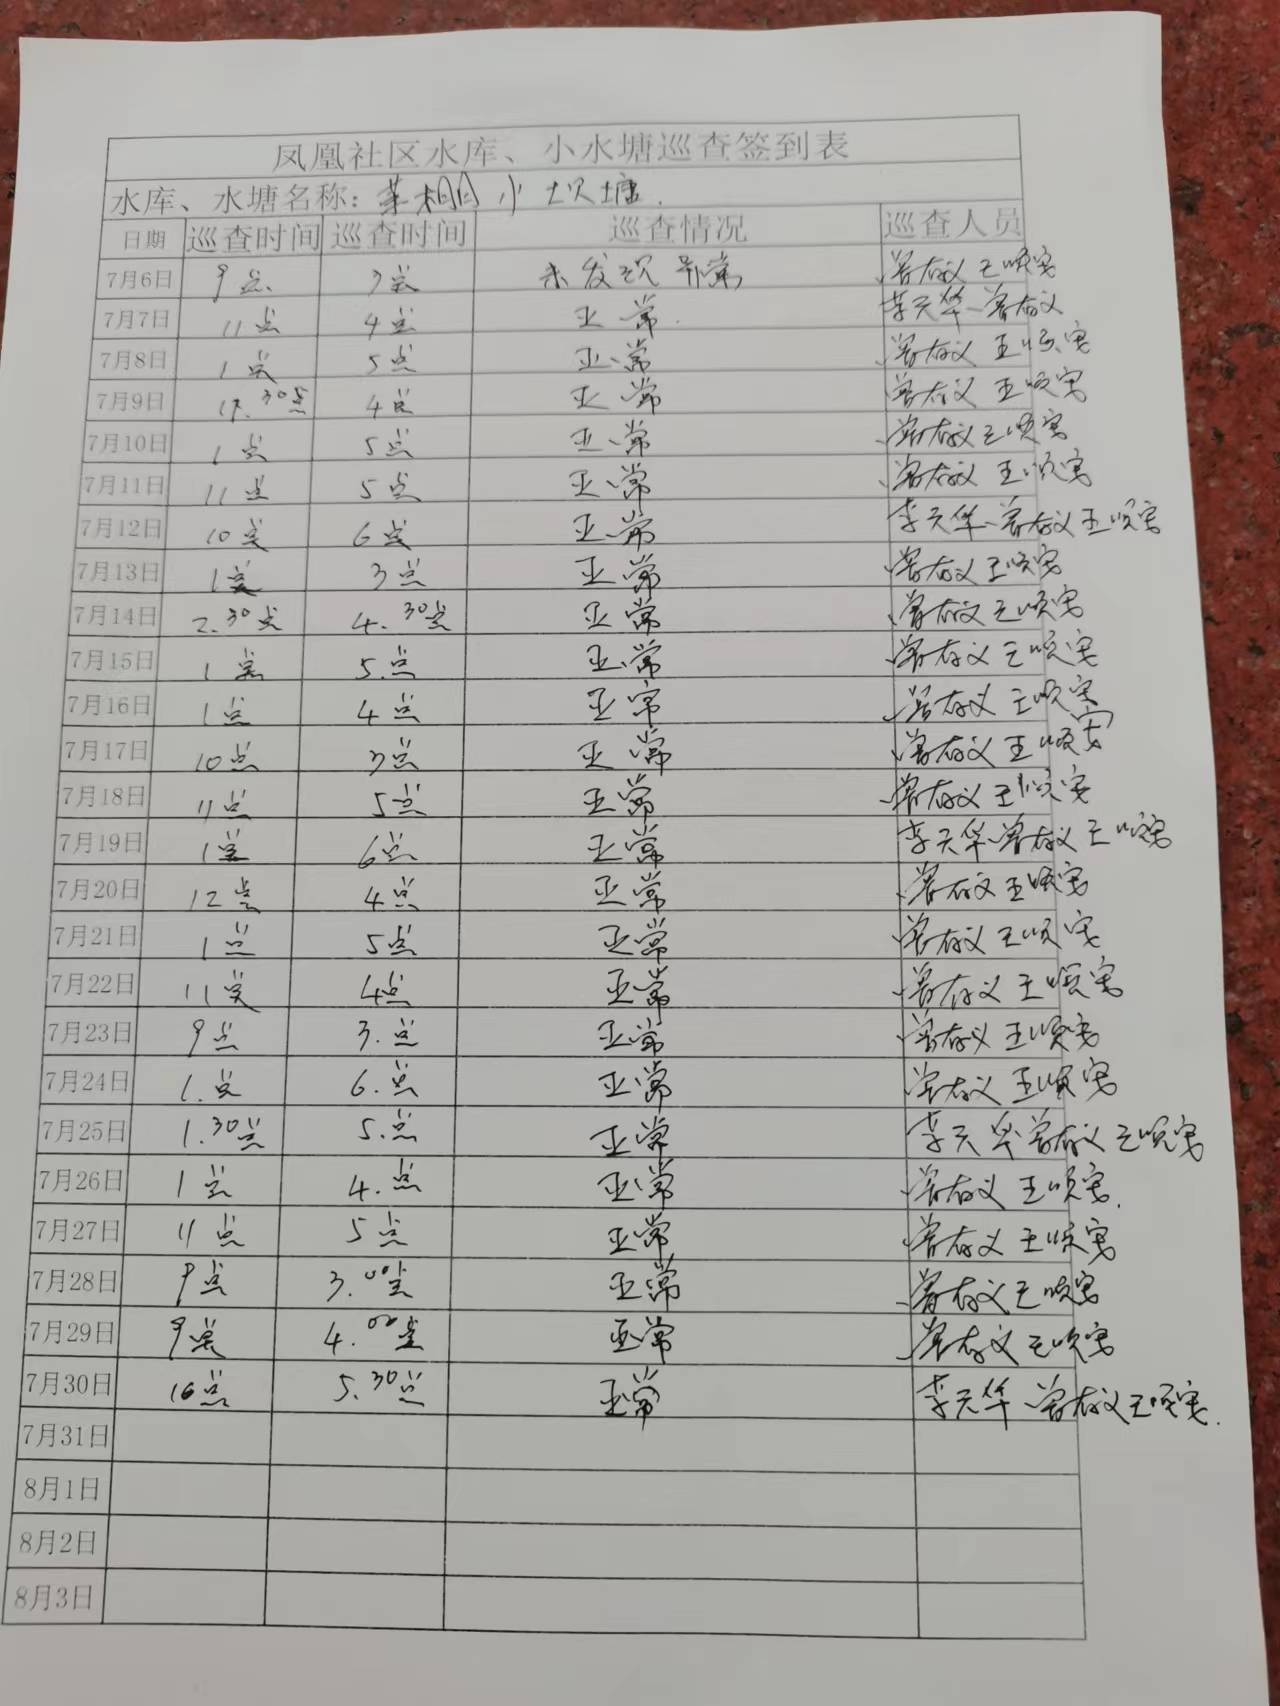 凤凰社区水库、小水塘巡查签到表
水库、水塘名称：菜棚小坝塘
日期 巡查时间 巡查时间 巡查情况 巡查人员
7月6日 9点 3点 未发现异常 曾存义 王顺宽
7月7日 11点 4点 正常 李天华 曾存义
7月8日 1点 5点 正常 曾存义 王顺宽
7月9日 30点 4点 正常 曾存义 王顺宽
7月10日 1点 5点 正常 曾存义 王顺宽
7月11日 11点 5点 正常 曾存义 王顺宽
7月12日 10点 6点 正常 李天华 曾存义 王顺宽
7月13日 1点 3点 正常 曾存义 王顺宽
7月14日 2.30点 4.30点 正常 曾存义 王顺宽
7月15日 1点 5.点 正常 曾存义 王顺宽
7月16日 1点 4点 正常 曾存义 王顺宽
7月17日 10点 3点 正常 曾存义 王顺宽
7月18日 11点 5点 正常 曾存义 王顺宽
7月19日 1点 6点 正常 李天华 曾存义 王顺宽
7月20日 12点 4点 正常 曾存义 王顺宽
7月21日 1点 5点 正常 曾存义 王顺宽
7月22日 11点 4点 正常 曾存义 王顺宽
7月23日 9点 3.点 正常 曾存义 王顺宽
7月24日 1.点 6.点 正常 曾存义 王顺宽
7月25日 1.30点 5.点 正常 李天华 曾存义 王顺宽
7月26日 1点 4.点 正常 曾存义 王顺宽
7月27日 11点 5点 正常 曾存义 王顺宽
7月28日 9点 3.00点 正常 曾存义 王顺宽
7月29日 9点 4.00点 正常 曾存义 王顺宽
7月30日 10点 5.30点 正常 李天华 曾存义 王顺宽
7月31日
8月1日
8月2日
8月3日